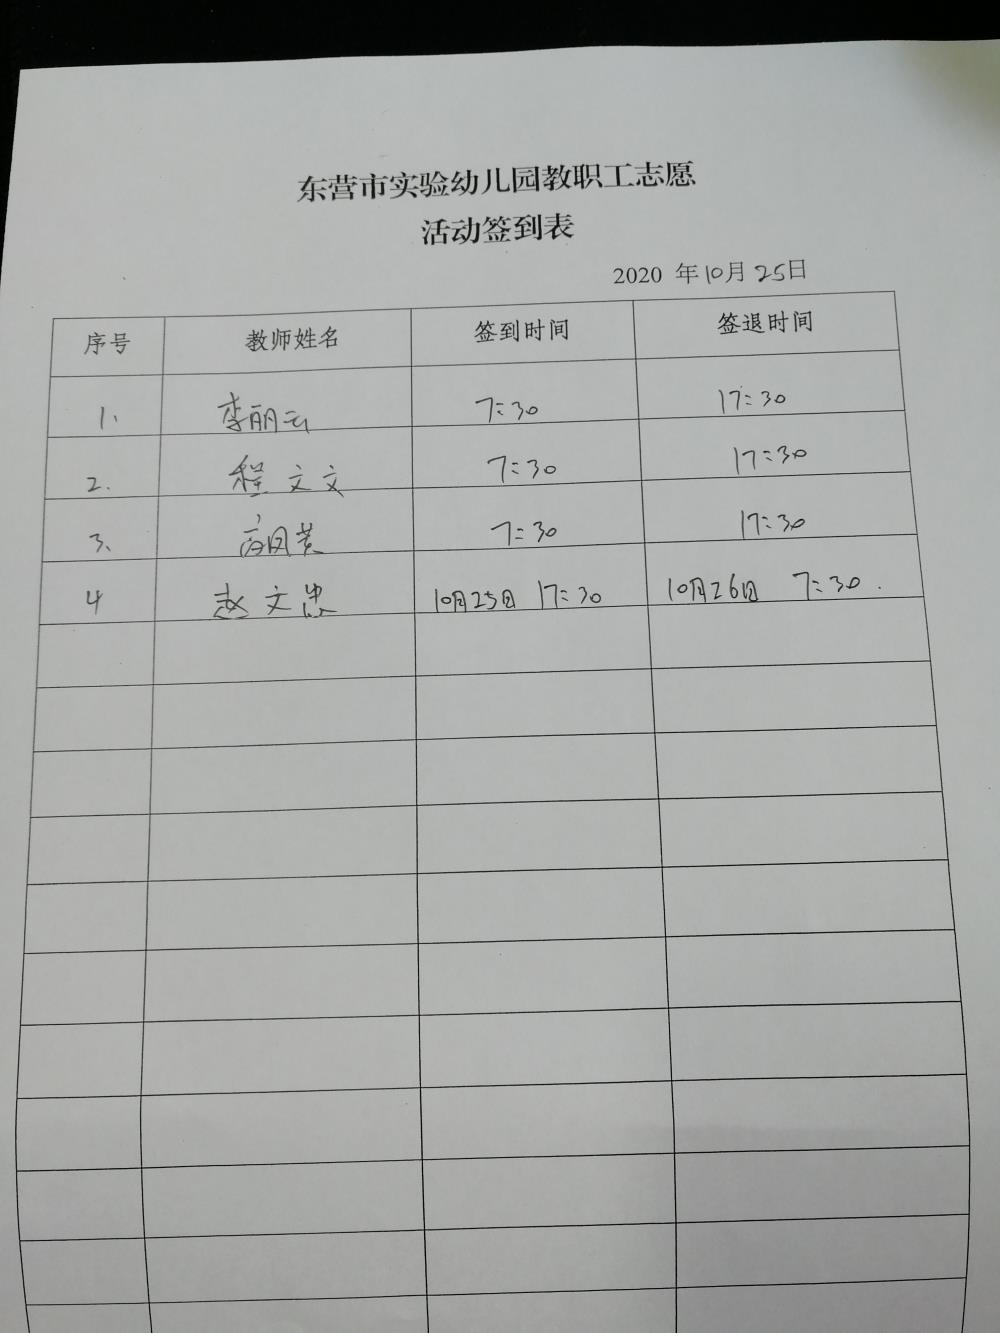 东营市实验幼儿园教职工志愿
活动签到表
2020 年10月25日
序号 教师姓名 签到时间 签退时间
1、 李丽云 7:30 17:30
2. 程文文 7:30 17:30
3、 7:30 17:30
4 赵文忠 10月25日 17:30 10月26日 7:30.